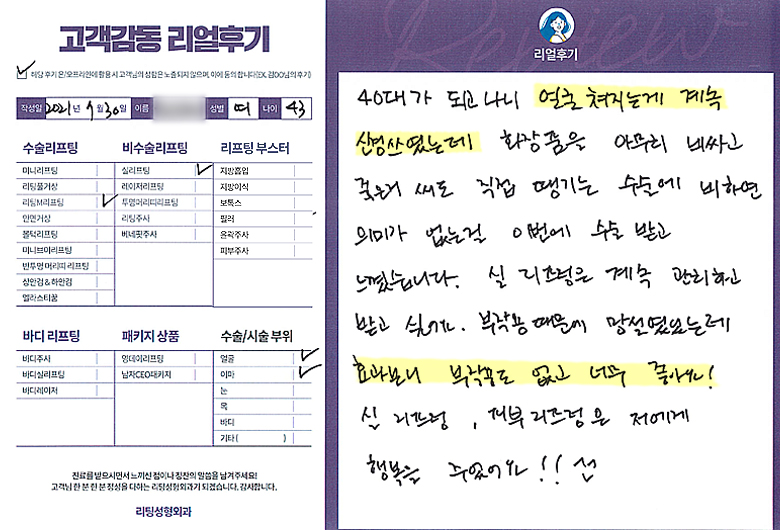 고객감동 리얼후기
해당 후기 온/오프라인에 활용 시 고객님의 성함은 노출되지 않으며, 이에 동의 합니다(EX. 김OO님의 후기)
작성일 2021년 9월 30일 이름 성별 여 나이 43
수술리프팅
미니리프팅
리팅풀거상
리팅M리프팅
안면거상
볼턱리프팅
미니브이리프팅
반투명 머리띠 리프팅
상안검 & 하안검
엘라스티꿈
비수술리프팅
실리프팅
레이저리프팅
투명머리띠리프팅
리팅주사
버네핏주사
리프팅 부스터
지방흡입
지방이식
보톡스
필러
윤곽주사
피부주사
바디 리프팅
바디주사
바디실리프팅
바디레이저
패키지 상품
앙데이리프팅
남자CEO패키지
수술/시술 부위
얼굴
이마
눈
목
바디
기타 ( )
진료를 받으시면서 느끼신 점이나 칭찬의 말씀을 남겨주세요!
고객님 한 분 한 분 정성을 다하는 리팅성형외과가 되겠습니다. 감사합니다.
리팅성형외과
Review
리얼후기
40대가 되고나니 얼굴 쳐지는게 계속
신경쓰였는데 화장품을 아무리 비싸고
좋은거 써도 직접 땡기는 수술에 비하면
의미가 없는걸 이번에 수술 받고
느꼈습니다. 실 리프팅은 계속 관리하고
받고 싶어요. 부작용때문에 망설였었는데
효과보니 부작용도 없고 너무 좋아요!
실 리프팅, 피부 리프팅은 저에게
행복을 주었어요!!